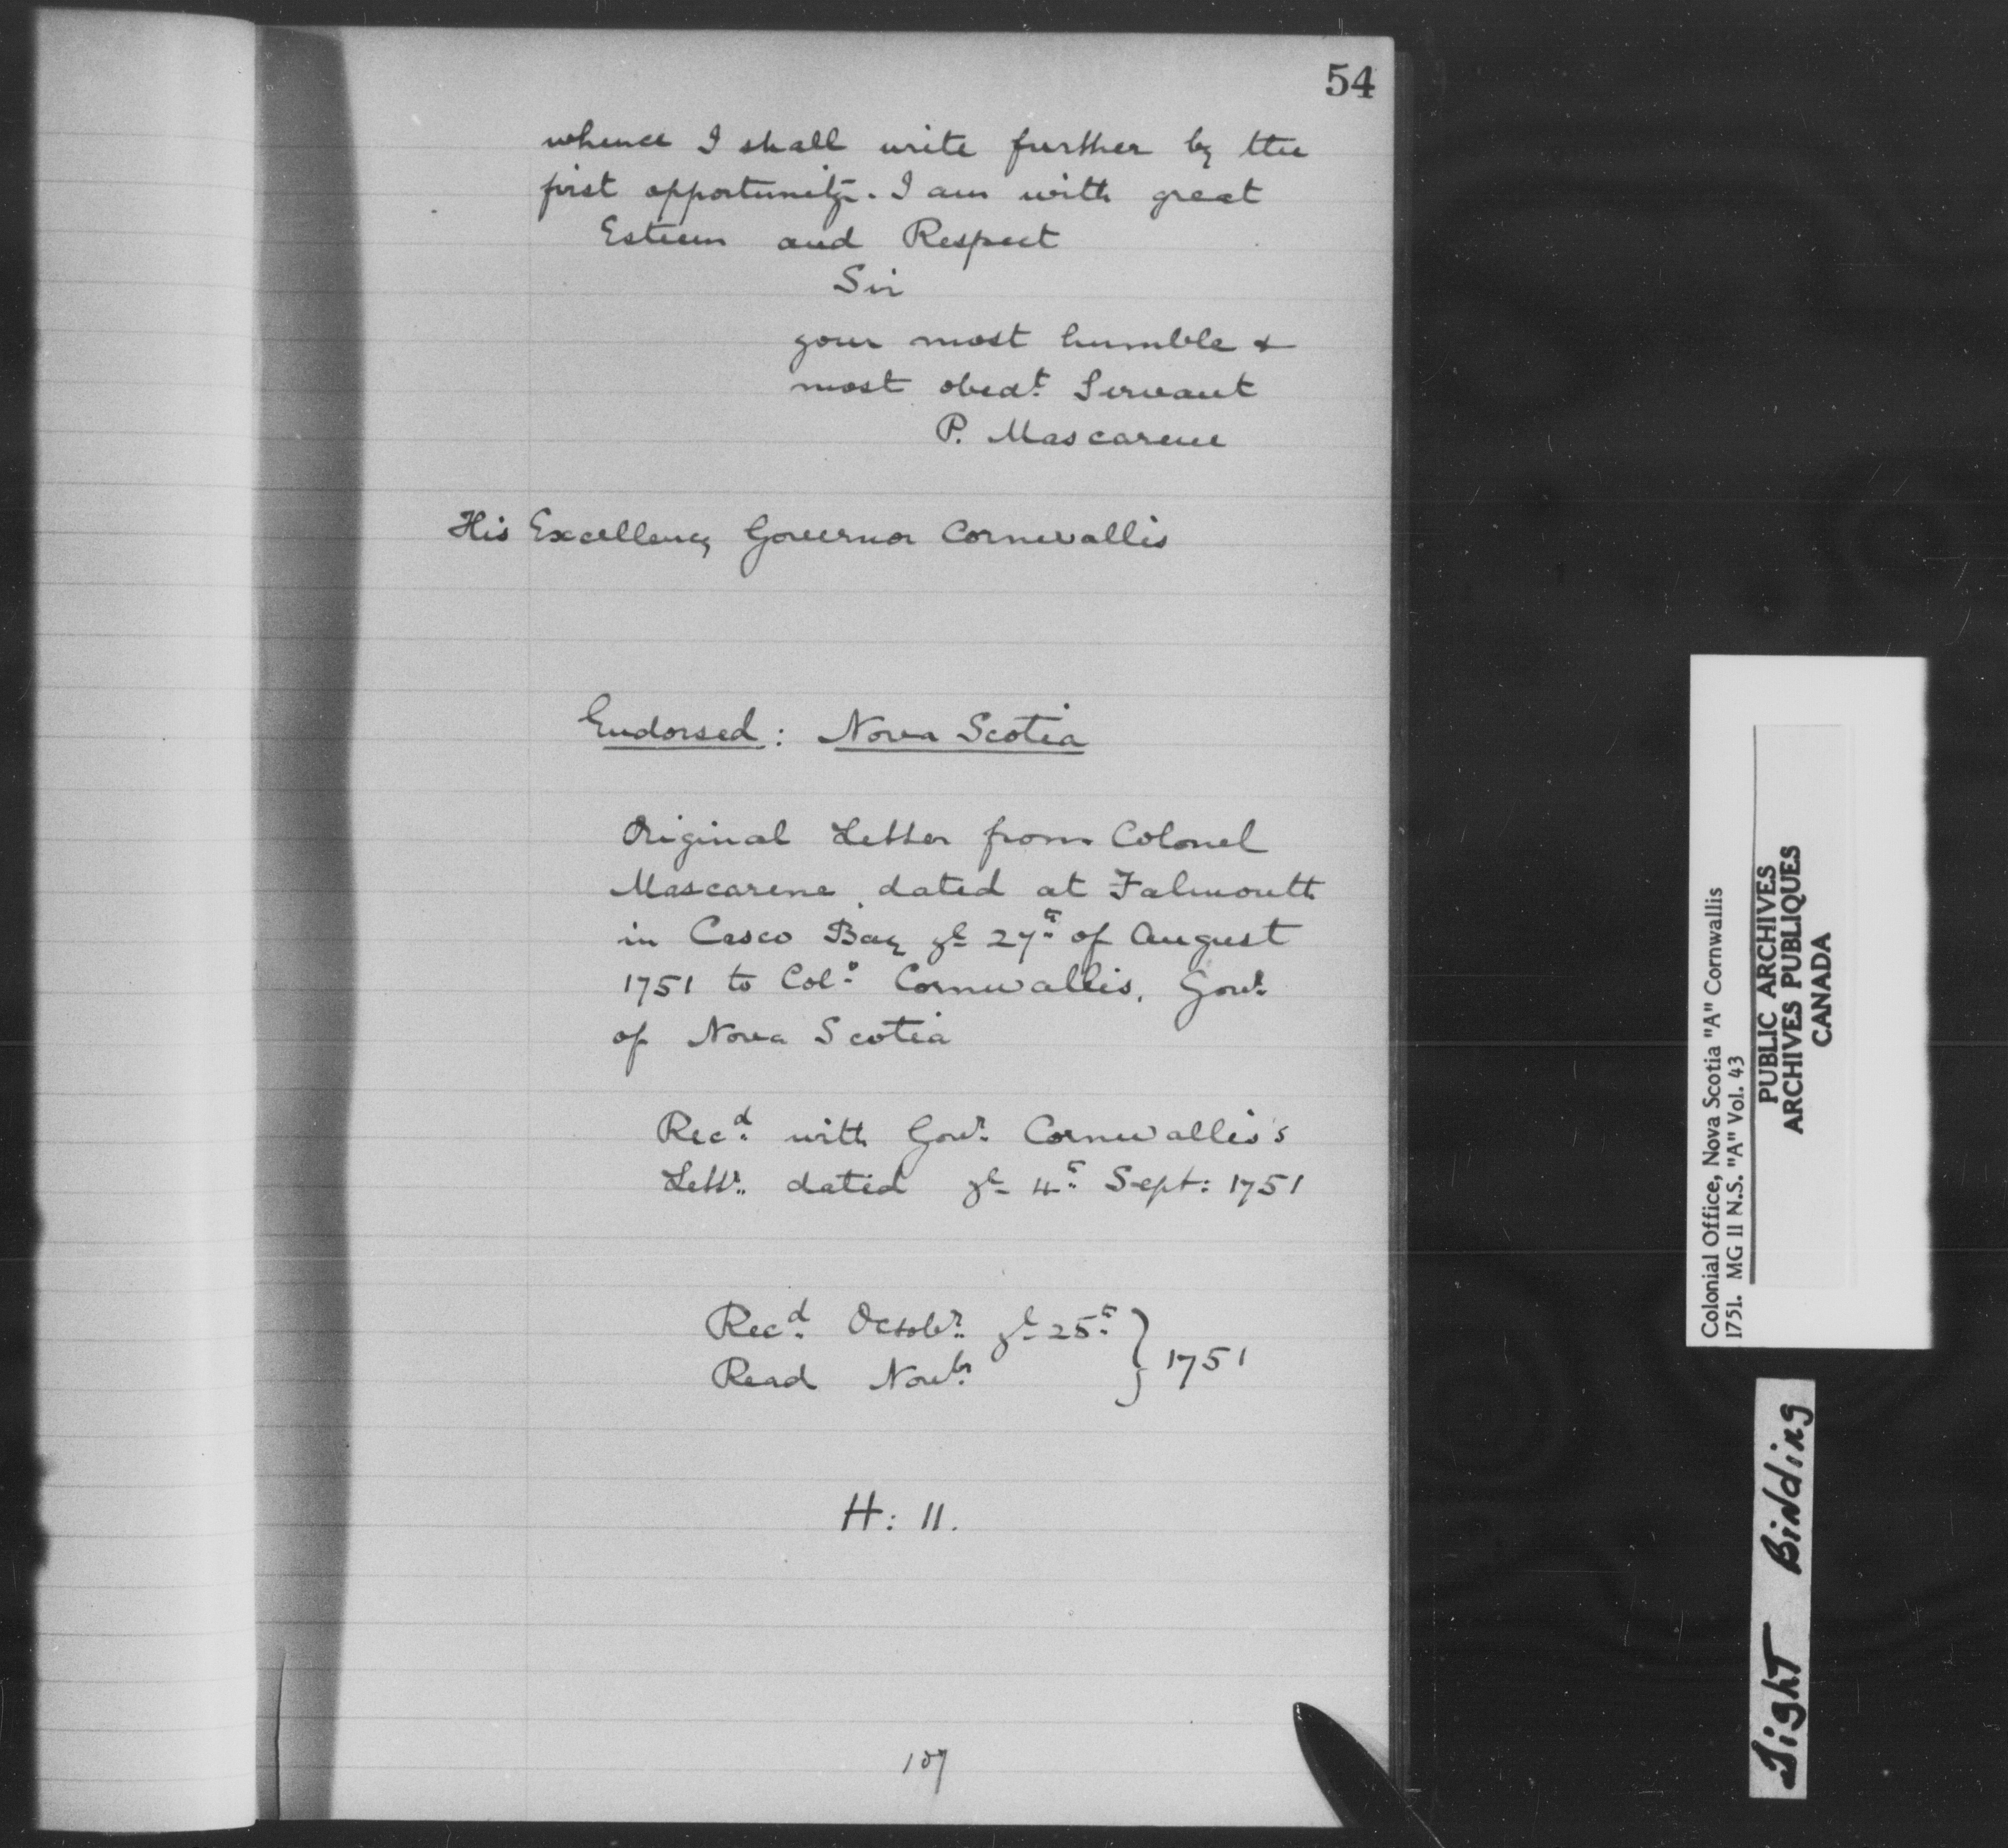 54
whence I shall write further by the
first opportunity. I am with great
Esteem and Respect
Sir
your most humble &
most obedt. Servant
P. Mascarene
His Excellency Governor Cornwallis
Endorsed: Nova Scotia
Original Letter from Colonel
Mascarene, dated at Falmouth
in Casco Bay ye 27th of August
1751 to Colo. Cornwallis, Govr.
of Nova Scotia
Recd. with Govr. Cornwallis's
Lettr. dated ye 4th Sept: 1751
Recd. Octobr. ye 25th } 1751
Read Novbr.
H: 11.
107
Colonial Office, Nova Scotia "A" Cornwallis
1751. MG 11 N.S. "A" Vol. 43
PUBLIC ARCHIVES
ARCHIVES PUBLIQUES
CANADA
Tight Binding